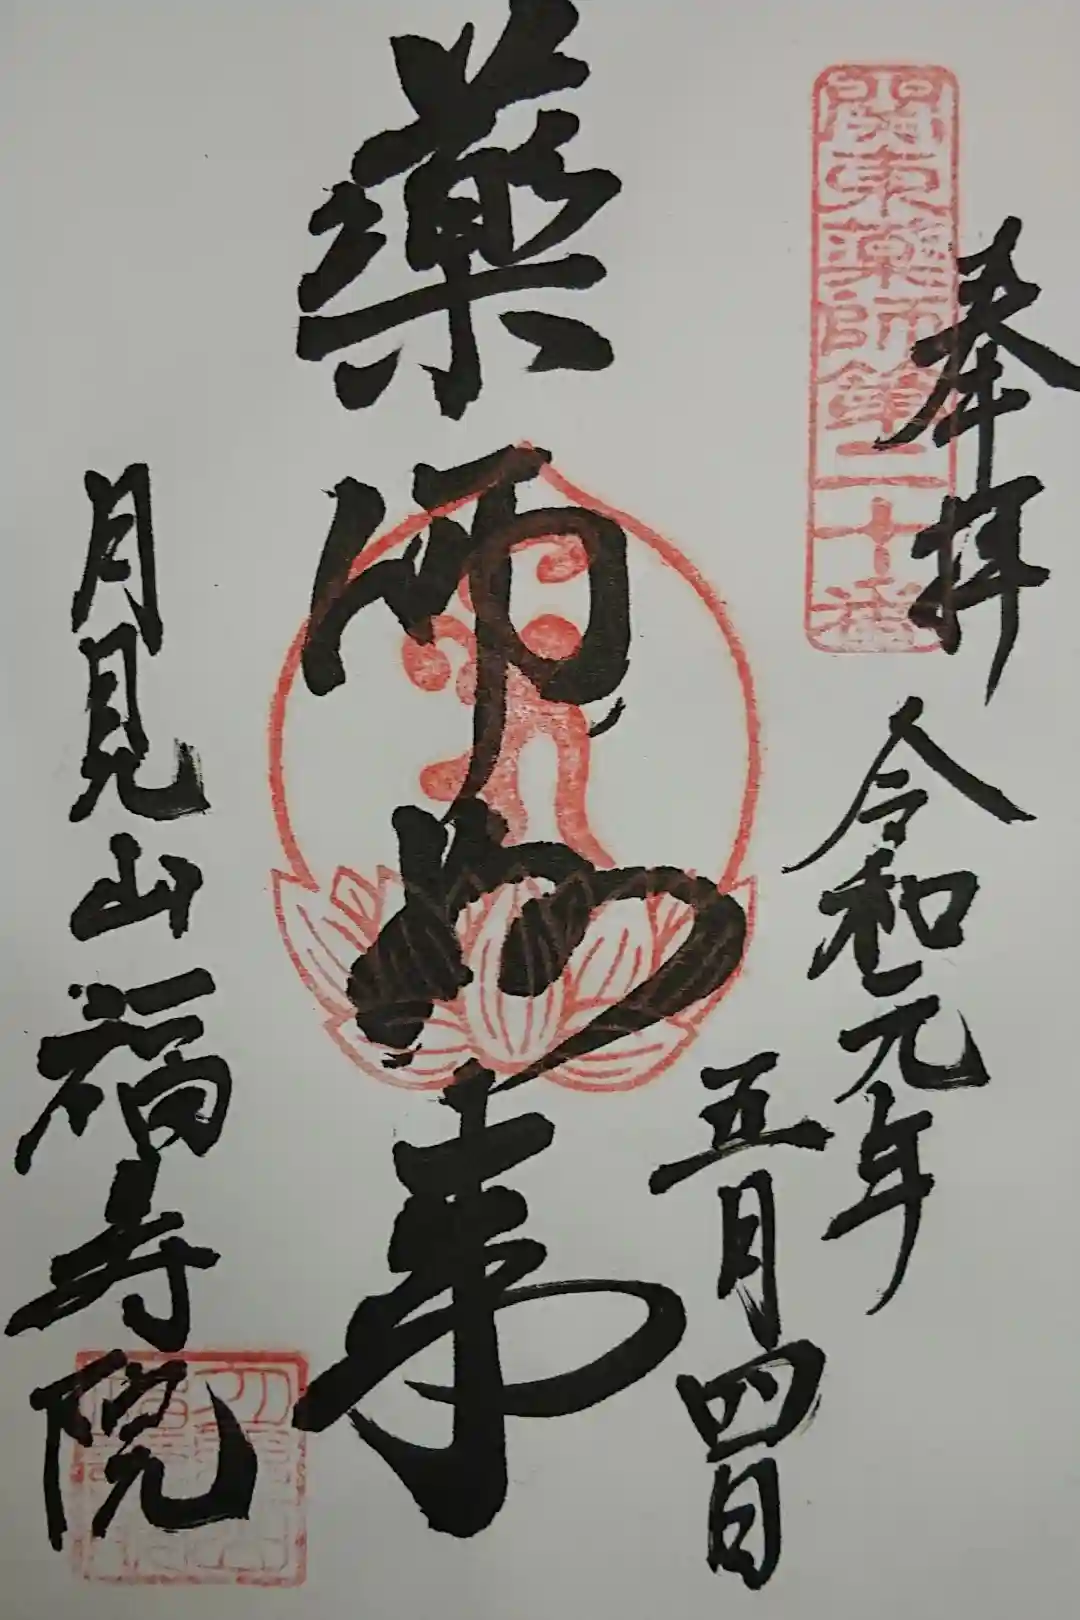 奉拝
關東薬師第二十番
令和元年
五月四日
薬師如来
月見山福寿院